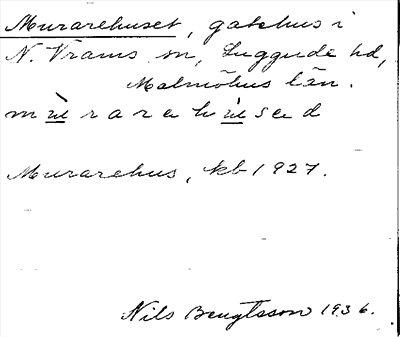 Murarehuset, gatehus i
N. Vrams sn, Luggude hd,
Malmöhus län.
Murarehus, kb 1927.
Nils Bengtsson 1936.